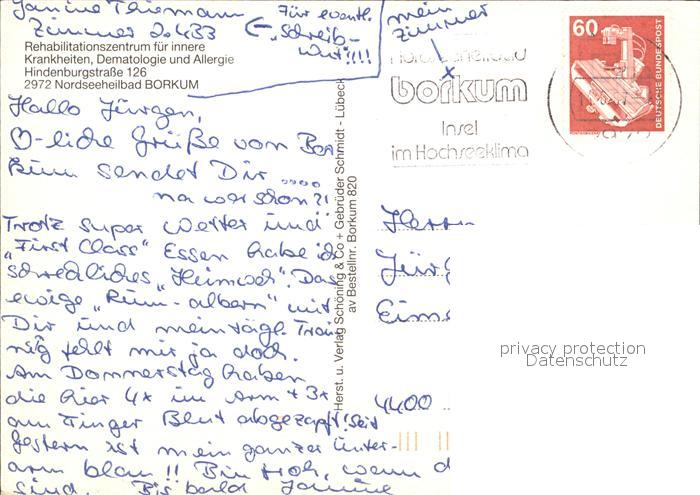 Janine Thiemann
Zimmer 2.433
Für eventl.
Schreib-
wut!!!!
mein
Zimmer
Rehabilitationszentrum für innere
Krankheiten, Dematologie und Allergie
Hindenburgstraße 126
2972 Nordseeheilbad BORKUM
Hallo Jürgen,
♡-liche Grüße vom Bor-
kum sendet Dir ....
na wer schon?!
Trotz super Wetter und
„First Class“ Essen habe ich
schreckliches „Heimweh“. Das
ewige „Rum-albern“ mit
Dir und mein tägl. Trai-
nig fehlt mir ja doch.
Am Donnerstag haben
die hier 4x im Arm + 3x
am Finger Blut abgezapft! Seit
gestern ist mein ganzer Unter-
arm blau!! Bin froh, wenn d
sind. Bis bald Janine
Herst. u. Verlag Schöning & Co + Gebrüder Schmidt - Lübeck
av Bestellnr. Borkum 820
Nordseeheilbad
borkum
Insel
im Hochseeklima
60
DEUTSCHE BUNDESPOST
Herrn
Jürg
Eims
4400
privacy protection
Datenschutz